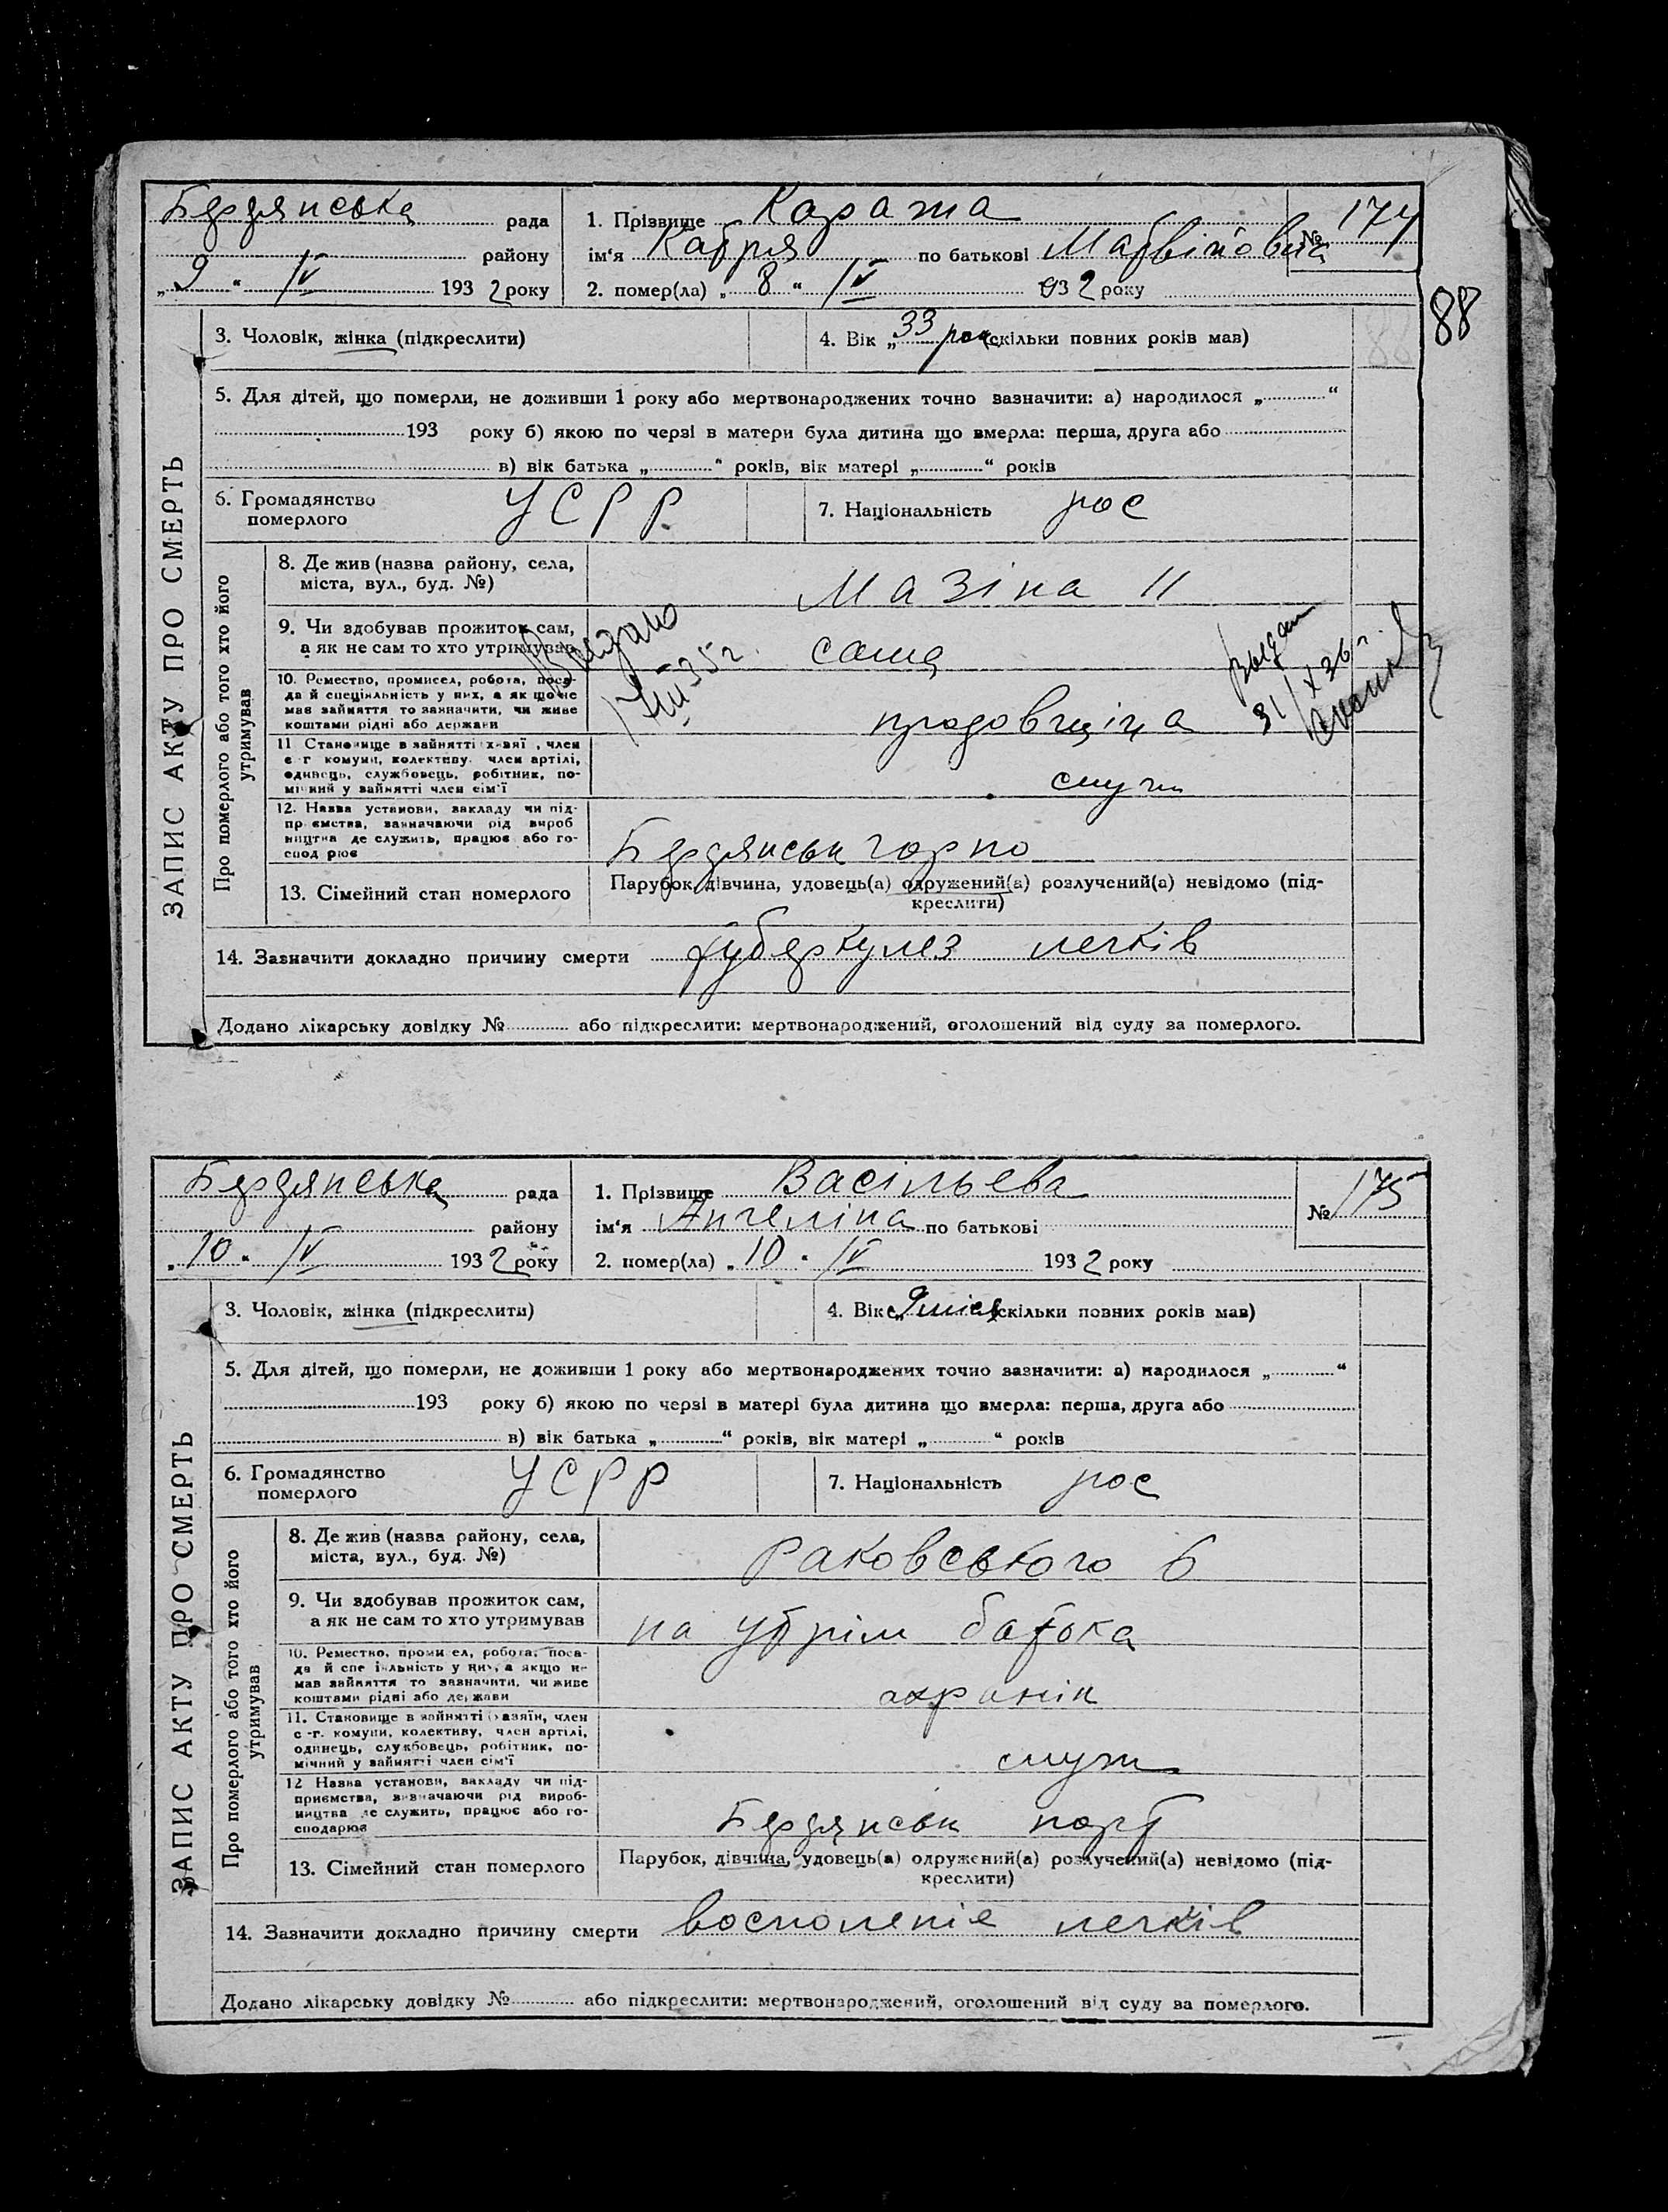 Бердянська рада
району
„9“ IV 1932 року
1. Прізвище Карата
ім‘я Катря по батькові Матвіїовна
№ 174
2. помер(ла) „8“ IV 932 року
88
ЗАПИС АКТУ ПРО СМЕРТЬ
3. Чоловік, жінка (підкреслити)
4. Вік „33 рок (скільки повних років мав)
5. Для дітей, що померли, не доживши 1 року або мертвонароджених точно зазначити: а) народилося „ “
193 року б) якою по черзі в матери була дитина що вмерла: перша, друга або
в) вік батька „ “ років, вік матері „ “ років
6. Громадянство
померлого
УСРР
7. Національність рос
Про померлого або того хто його
утримував
8. Де жив (назва району, села,
міста, вул., буд. №)
Мазіна 11
9. Чи здобував прожиток сам,
а як не сам то хто утримував
сама
Выдано
35 г.
Выдан
31/X 36 г.
10. Ремество, промисел, робота, поса-
да й специіяльність у них, а як що не
має займття то зазначити, чи живе
коштами рідні або держави
продовщіца
11 Становище в зайнятті хазяї , член
с г комуни, колективу. член артілі,
одинець, службовець, робітник, по-
мічний у зайнятті член сім‘ї
служ
12. Назва установи, закладу чи під-
приємства, зазначаючи рід вироб
ництва де служить, працює або го-
спод рює
Бердянськ горпо
13. Сімейний стан померлого
Парубок, дівчина, удовець(а) одружений(а) розлучений(а) невідомо (під-
креслити)
14. Зазначити докладно причину смерти туберкулез легків
Додано лікарську довідку № або підкреслити: мертвонароджений, оголошений від суду за померлого.
Бердянська рада
району
„10“ IV 1932 року
1. Прізвище Васільєва
ім‘я Ангеліна по батькові
№ 175
2. помер(ла) „10“ IV 1932 року
ЗАПИС АКТУ ПРО СМЕРТЬ
3. Чоловік, жінка (підкреслити)
4. Вік „9 міс (скільки повних років мав)
5. Для дітей, що померли, не доживши 1 року або мертвонароджених точно зазначити: а) народилося „ “
193 року б) якою по черзі в матері була дитина що вмерла: перша, друга або
в) вік батька „ “ років, вік матері „ “ років
6. Громадянство
померлого
УСРР
7. Національність рос
Про померлого або того хто його
утримував
8. Де жив (назва району, села,
міста, вул., буд. №)
Раковського 6
9. Чи здобував прожиток сам,
а як не сам то хто утримував
на утрім батька
10. Ремество, промисел, робота, поса-
да й спеціяльність у них, а якщо не
мав зайняття то зазначити, чи живе
коштами рідні або держави
охранік
11. Становище в зайнятті хазяїн, член
с -г. комуни, колективу, член артілі,
одинець, службовець, робітник, по-
мічний у зайнятті член сім‘ї
служ
12 Назва установи, закладу чи під-
приємства, визначаючи рід вироб-
ництва де служить, працює або го-
сподарює
Бердянськ порт
13. Сімейний стан померлого
Парубок, дівчина, удовець(а) одружений(а) розлучений(а) невідомо (під-
креслити)
14. Зазначити докладно причину смерти восполеніе легків
Додано лікарську довідку № або підкреслити: мертвонароджений, оголошений від суду за померлого.